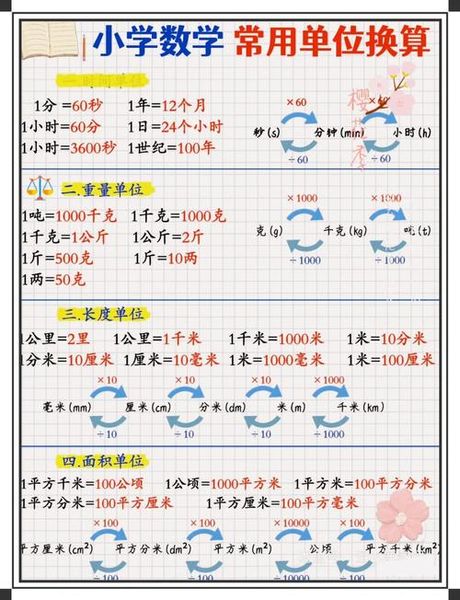 小学数学 常用单位换算
一.时间单位
1分=60秒 1年=12个月
1小时=60分 1日=24个小时
1小时=3600秒 1世纪=100年
×60 ×60
秒(s) 分钟(min) 小时(h)
÷60 ÷60
二.重量单位
1吨=1000千克 1千克=1000克
1千克=1公斤 1公斤=2斤
1斤=500克 1斤=10两
1两=50克
×1000 ×1000
克(g) 千克(kg) 吨(t)
÷1000 ÷1000
三.长度单位
1公里=2里 1公里=1千米 1千米=1000米 1米=10分米
1分米=10厘米 1厘米=10毫米 1米=1000毫米 1米=100厘米
×10 ×10 ×10 ×1000
毫米(mm) 厘米(cm) 分米(dm) 米(m) 千米(km)
÷10 ÷10 ÷10 ÷1000
四.面积单位
1平方千米=100公顷 1公顷=1000平方米 1平方米=100平方分米
1平方分米=100平方厘米 1平方厘米=100平方毫米
×100 ×100 ×10000 ×100
平方厘米(cm²) 平方分米(dm²) 平方米(m²) 公顷 平方千米(km²)
÷100 ÷100 ÷10000 ÷100